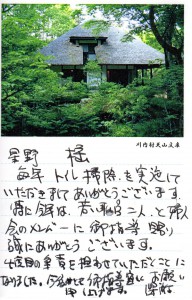 川内村天山文庫
星野 様
毎年 トイレ掃除を実施して
いただきましてありがとうございます。
特に今年は、若い 二人、と婦人
会のメンバーに御指導賜り
誠にありがとうございます。
を担当させていただくことに
なりました。今後とも御指導宜しくお願い
申し上げます。